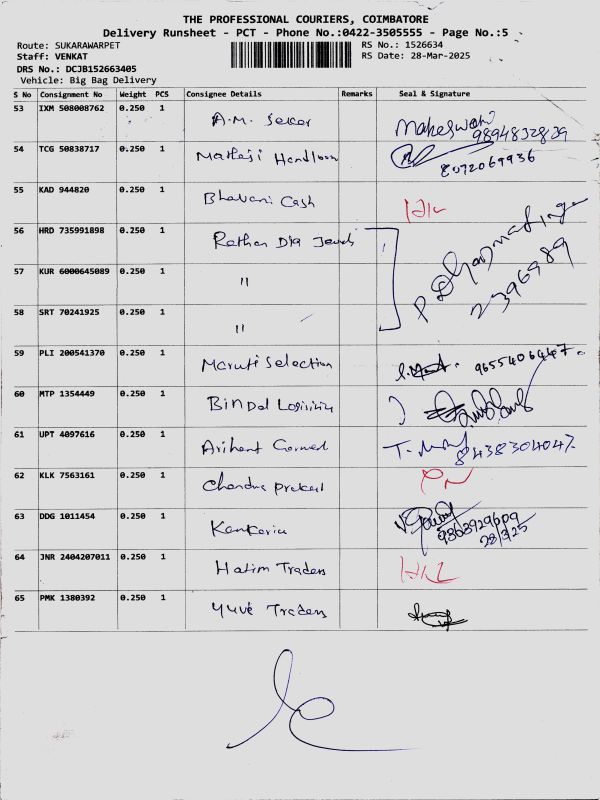 THE PROFESSIONAL COURIERS, COIMBATORE
Delivery Runsheet - PCT - Phone No.:0422-3505555 - Page No.:5
Route: SUKARAWARPET RS No.: 1526634
Staff: VENKAT RS Date: 28-Mar-2025
DRS No.: DCJB152663405
Vehicle: Big Bag Delivery
S No Consignment No Weight PCS Consignee Details Remarks Seal & Signature
53 IXM 508008762 0.250 1 A.M. Seker Maheswari 9894832829
54 TCG 50838717 0.250 1 Handloom 8072069936
55 KAD 944820 0.250 1 Bhavani Cash
56 HRD 735991898 0.250 1 Rathan Jewels
57 KUR 6000645089 0.250 1 "
58 SRT 70241925 0.250 1 "
2396989
59 PLI 200541370 0.250 1 Maruti Selection 9655406447
60 MTP 1354449 0.250 1 Bindal
61 UPT 4097616 0.250 1 Arihant 8438304047
62 KLK 7563161 0.250 1 Chandra
63 DDG 1011454 0.250 1 Kankaria 9363929609
28/3/25
64 JNR 2404207011 0.250 1 Hatim Traders
65 PMK 1380392 0.250 1 Yuve Traders